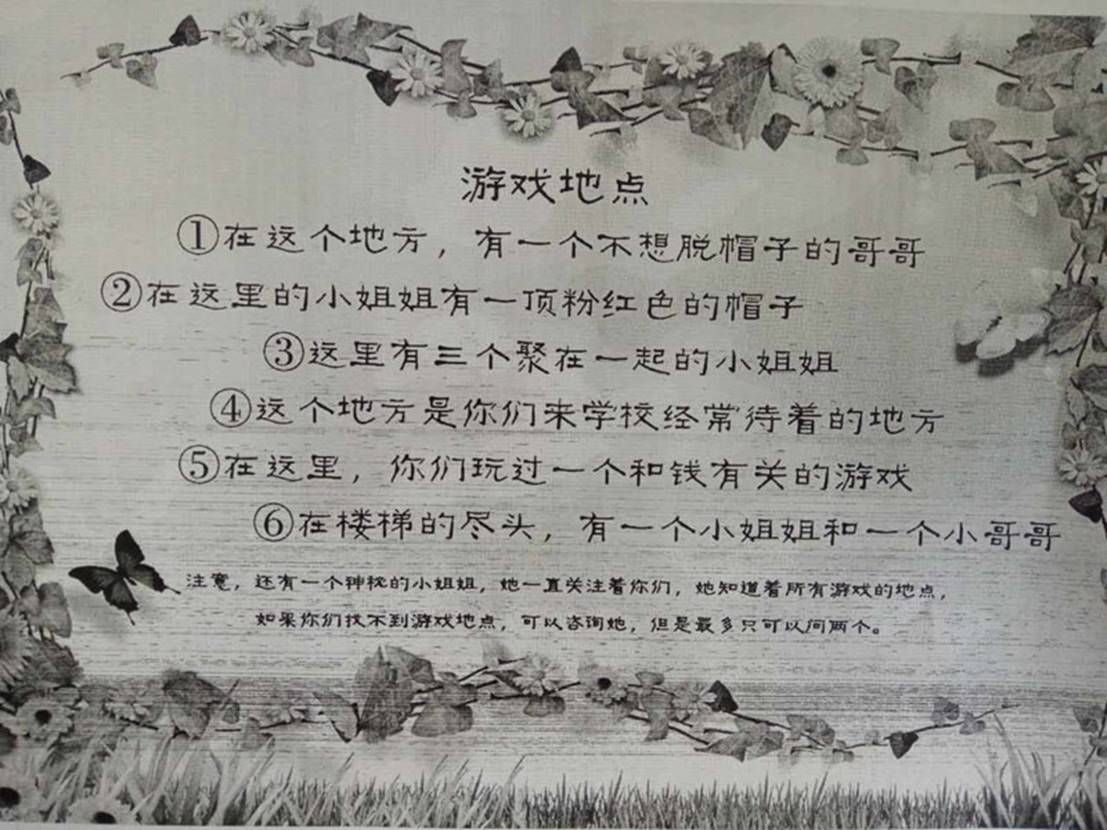 游戏地点
①在这个地方，有一个不想脱帽子的哥哥
②在这里的小姐姐有一顶粉红色的帽子
③这里有三个聚在一起的小姐姐
④这个地方是你们来学校经常待着的地方
⑤在这里，你们玩过一个和钱有关的游戏
⑥在楼梯的尽头，有一个小姐姐和一个小哥哥
注意，还有一个神秘的小姐姐，她一直关注着你们，她知道着所有游戏的地点，
如果你们找不到游戏地点，可以咨询她，但是最多只可以问两个。